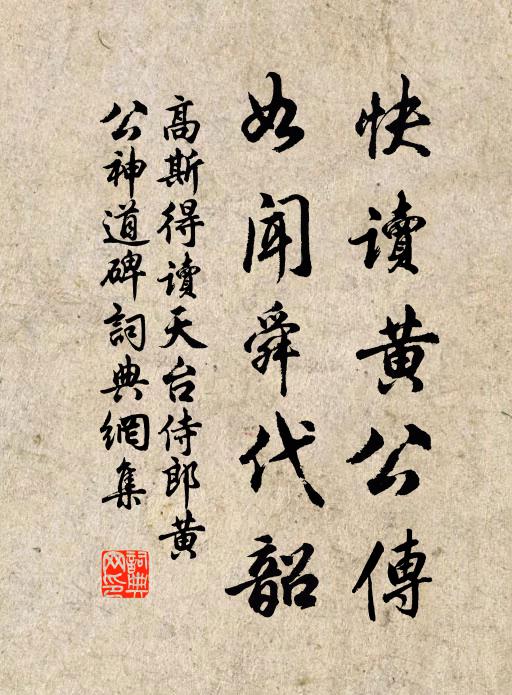 快讀黃公傳
如聞舜代韶
高斯得讀天台侍郎黃
公神道碑詞典網集
詞典
网印